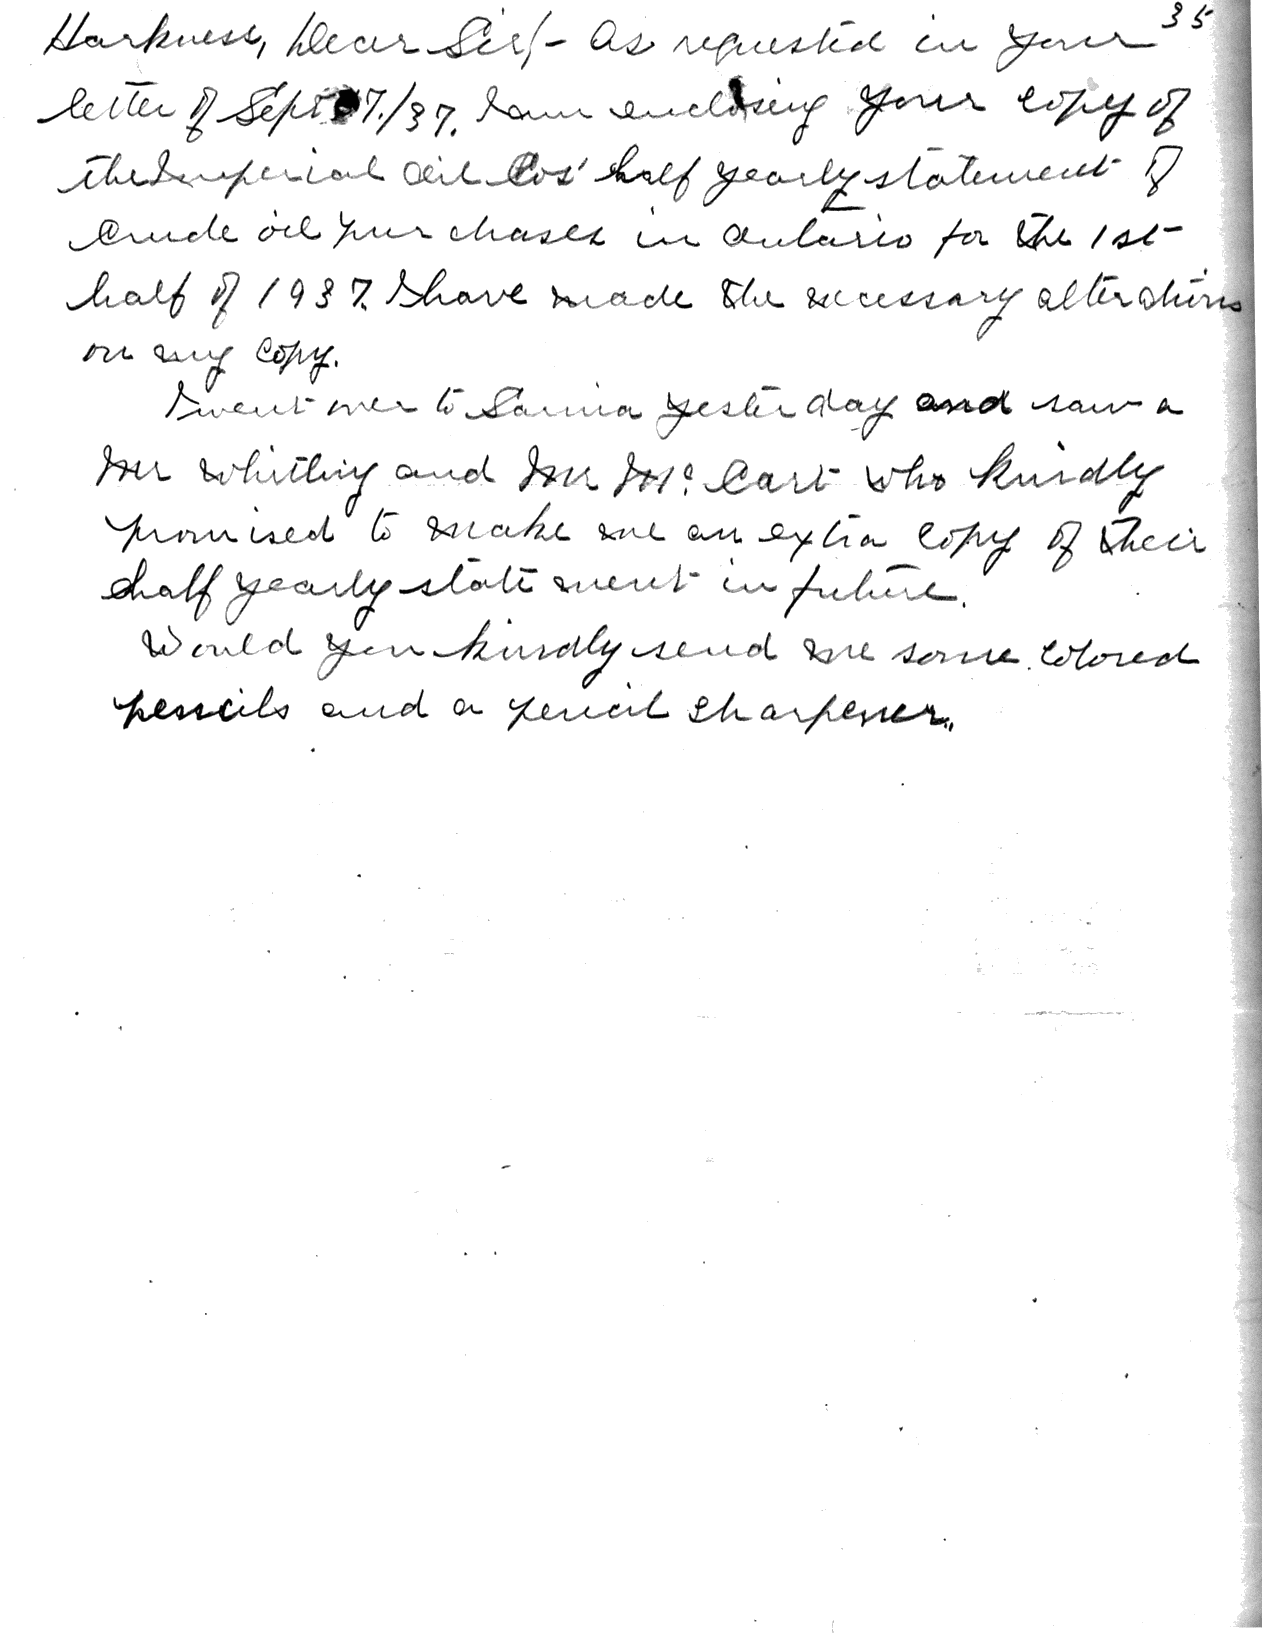 35
Harkness, Dear Sir/- As requested in your
letter of Sept 7./37. I am enclosing your copy of
the Imperial Oil Cos' half yearly statement of
Crude oil purchases in Ontario for the 1st
half of 1937. I have made the necessary alterations
on my copy.
I went over to Sarnia yesterday and saw a
Mr Whitling and Mr Mc. Cart who kindly
promised to make me an extra copy of their
half yearly statement in future.
Would you kindly send me some colored
pencils and a pencil sharpener.